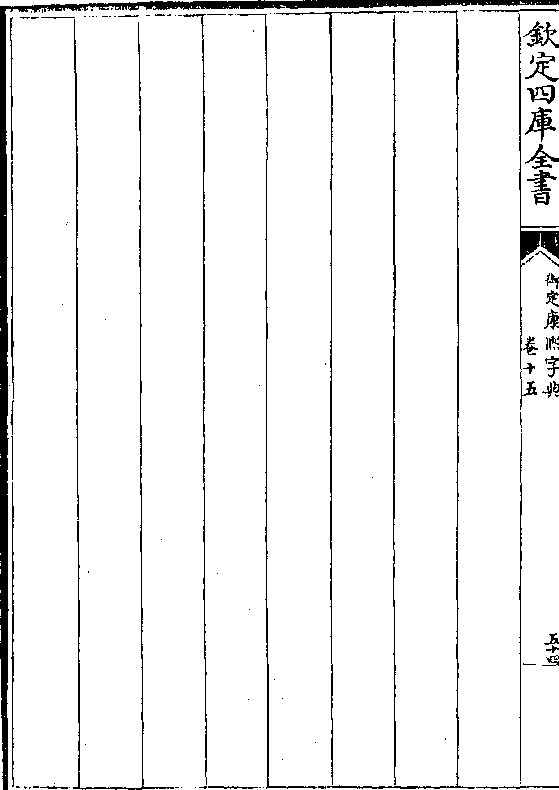 欽定四庫全書
御定康熙字典
卷十五
五十四